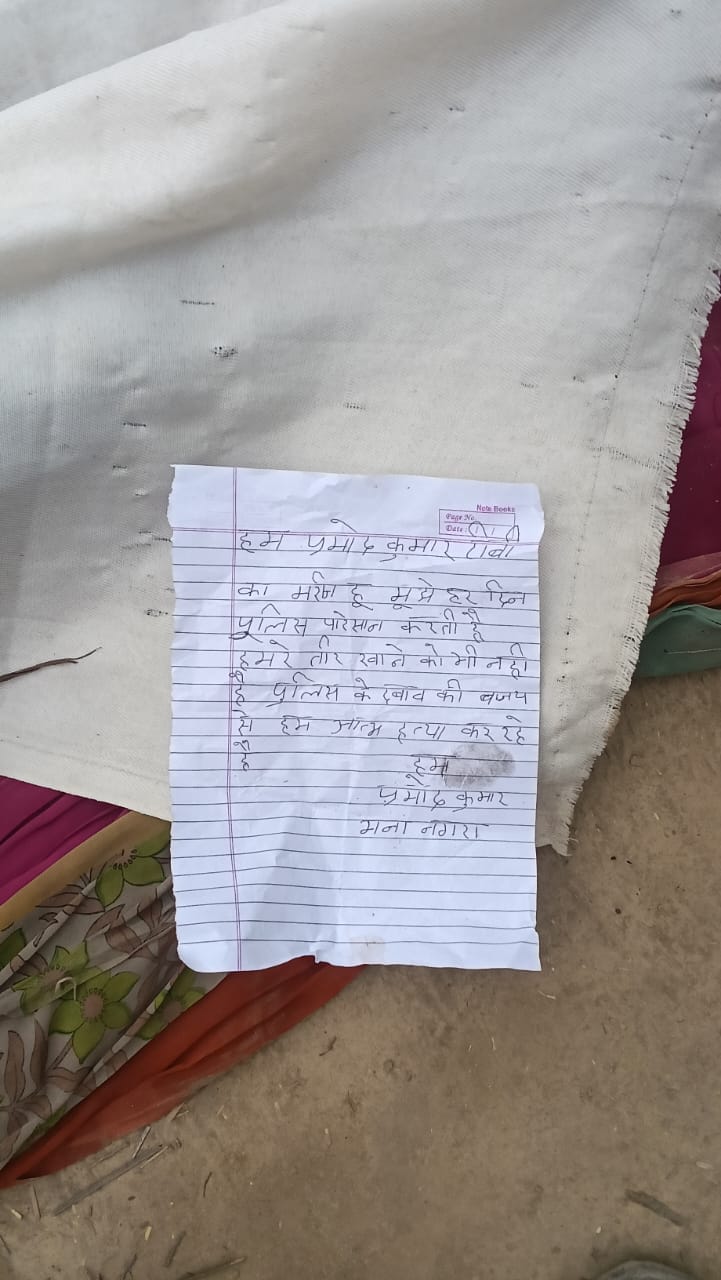 Note Books
Page No.
Date:
हम प्रमोद कुमार टीबी
का मरीज हू मूझे हर दिन
पुलिस परेसान करती है
हमरे तीर खाने को भी नही
है पुलिस के दबाव की बजय
से हम आत्म हत्या कर रहे
है
हम
प्रमोद कुमार
मना नगरा